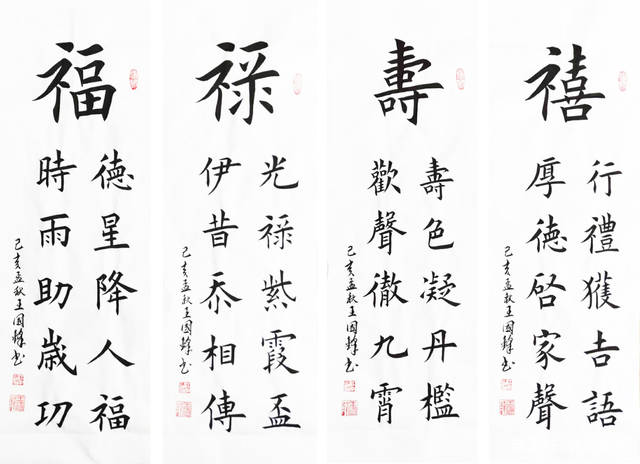 福
德星降人福
時雨助歲功
己亥孟秋王國鋒書
禄
光禄紫霞盃
伊昔忝相傳
己亥孟秋王國鋒書
壽
壽色凝丹檻
歡聲徹九霄
己亥孟秋王國鋒書
禧
行禮獲吉語
厚德啓家聲
己亥孟秋王國鋒書